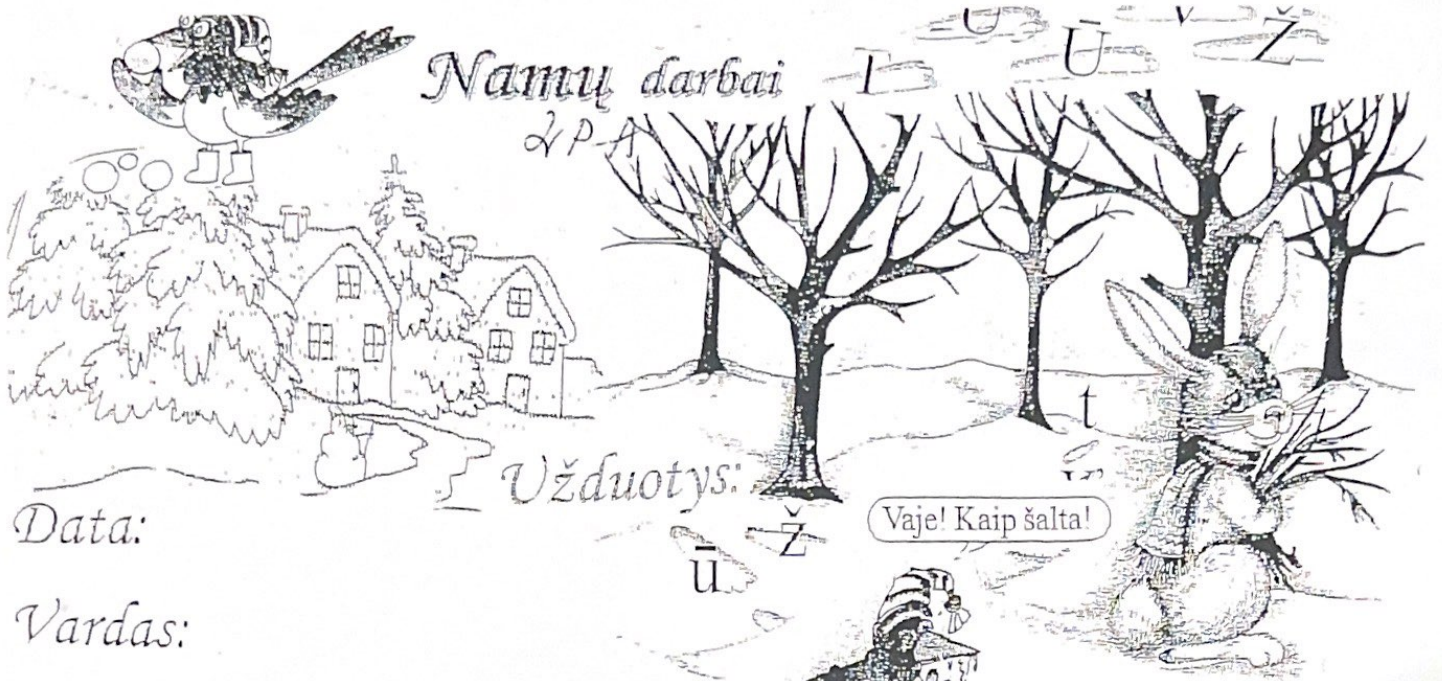 Namų darbai
T
Ū
Ž
t
Užduotys:
Vaje! Kaip šalta!
Data:
ž
ū
Vardas: